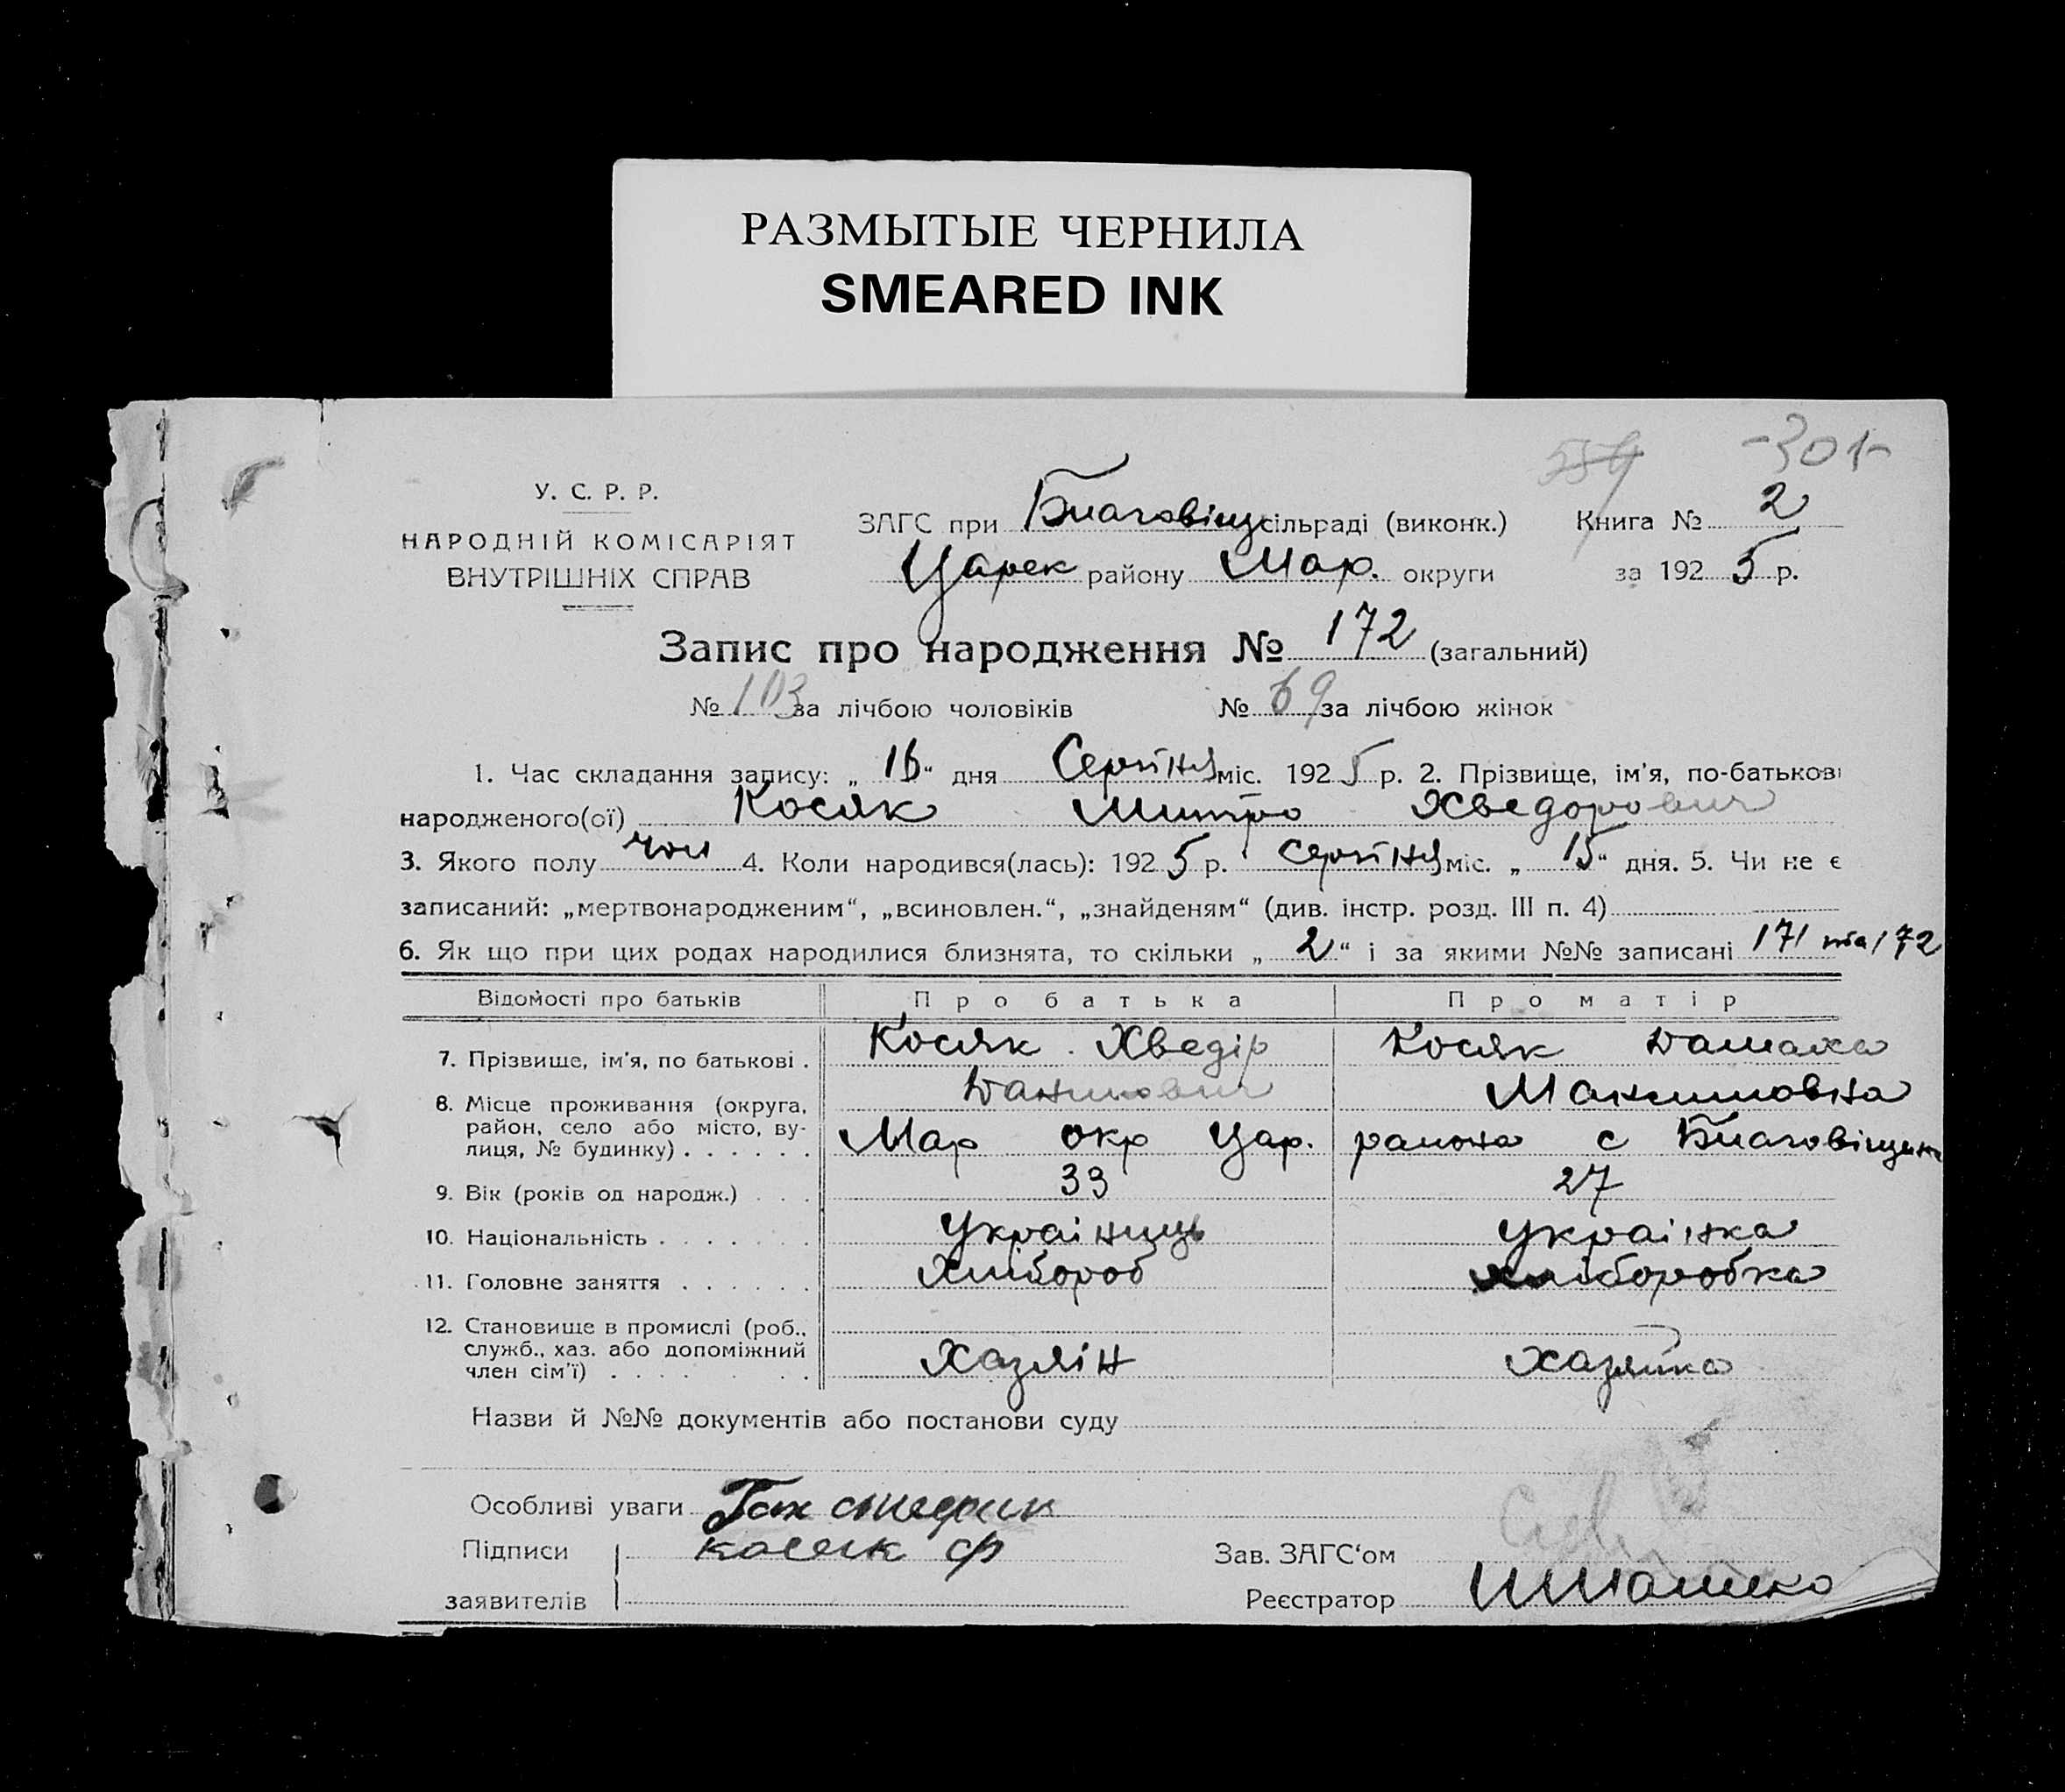 РАЗМЫТЫЕ ЧЕРНИЛА
SMEARED INK
554 -301-
У. С. Р. Р.
НАРОДНІЙ КОМІСАРІЯТ
ВНУТРІШНІХ СПРАВ
ЗАГС при Благовіщ сільраді (виконк.) Книга № 2
Царек району Мар. округи за 1925 р.
Запис про народження № 172 (загальний)
№ 103 за лічбою чоловіків № 69 за лічбою жінок
1. Час складання запису: „ 16 “ дня Серпіня міс. 1925 р. 2. Прізвище, ім'я, по-батькові
народженого(ої) Косяк Митро Хведорович
3. Якого полу чол 4. Коли народився(лась): 1925 р. Серпіня міс. „ 15 “ дня. 5. Чи не є
записаний: „мертвонародженим“, „всиновлен.“, „знайденям“ (див. інстр. розд. III п. 4)
6. Як що при цих родах народилися близнята, то скільки „ 2 “ і за якими №№ записані 171 та 172
Відомості про батьків Про батька Про матір
7. Прізвище, ім'я, по батькові . Косяк Хведір Косяк Домаха
Данилович Максимовна
8. Місце проживання (округа, район, село або місто, вулиця, № будинку) . . . . . . Мар окр Цар. района с Благовіщенка
9. Вік (років од народж.) . . . 33 27
10. Національність . . . . . . . Українць Українка
11. Головне заняття . . . . . . Хлібороб хліборобка
12. Становище в промислі (роб., служб., хаз. або допоміжний член сім'ї) . . . . . . . Хазяін хазяйка
Назви й №№ документів або постанови суду
Особливі уваги
Підписи косяк ф Зав. ЗАГС'ом
заявителів Реєстратор